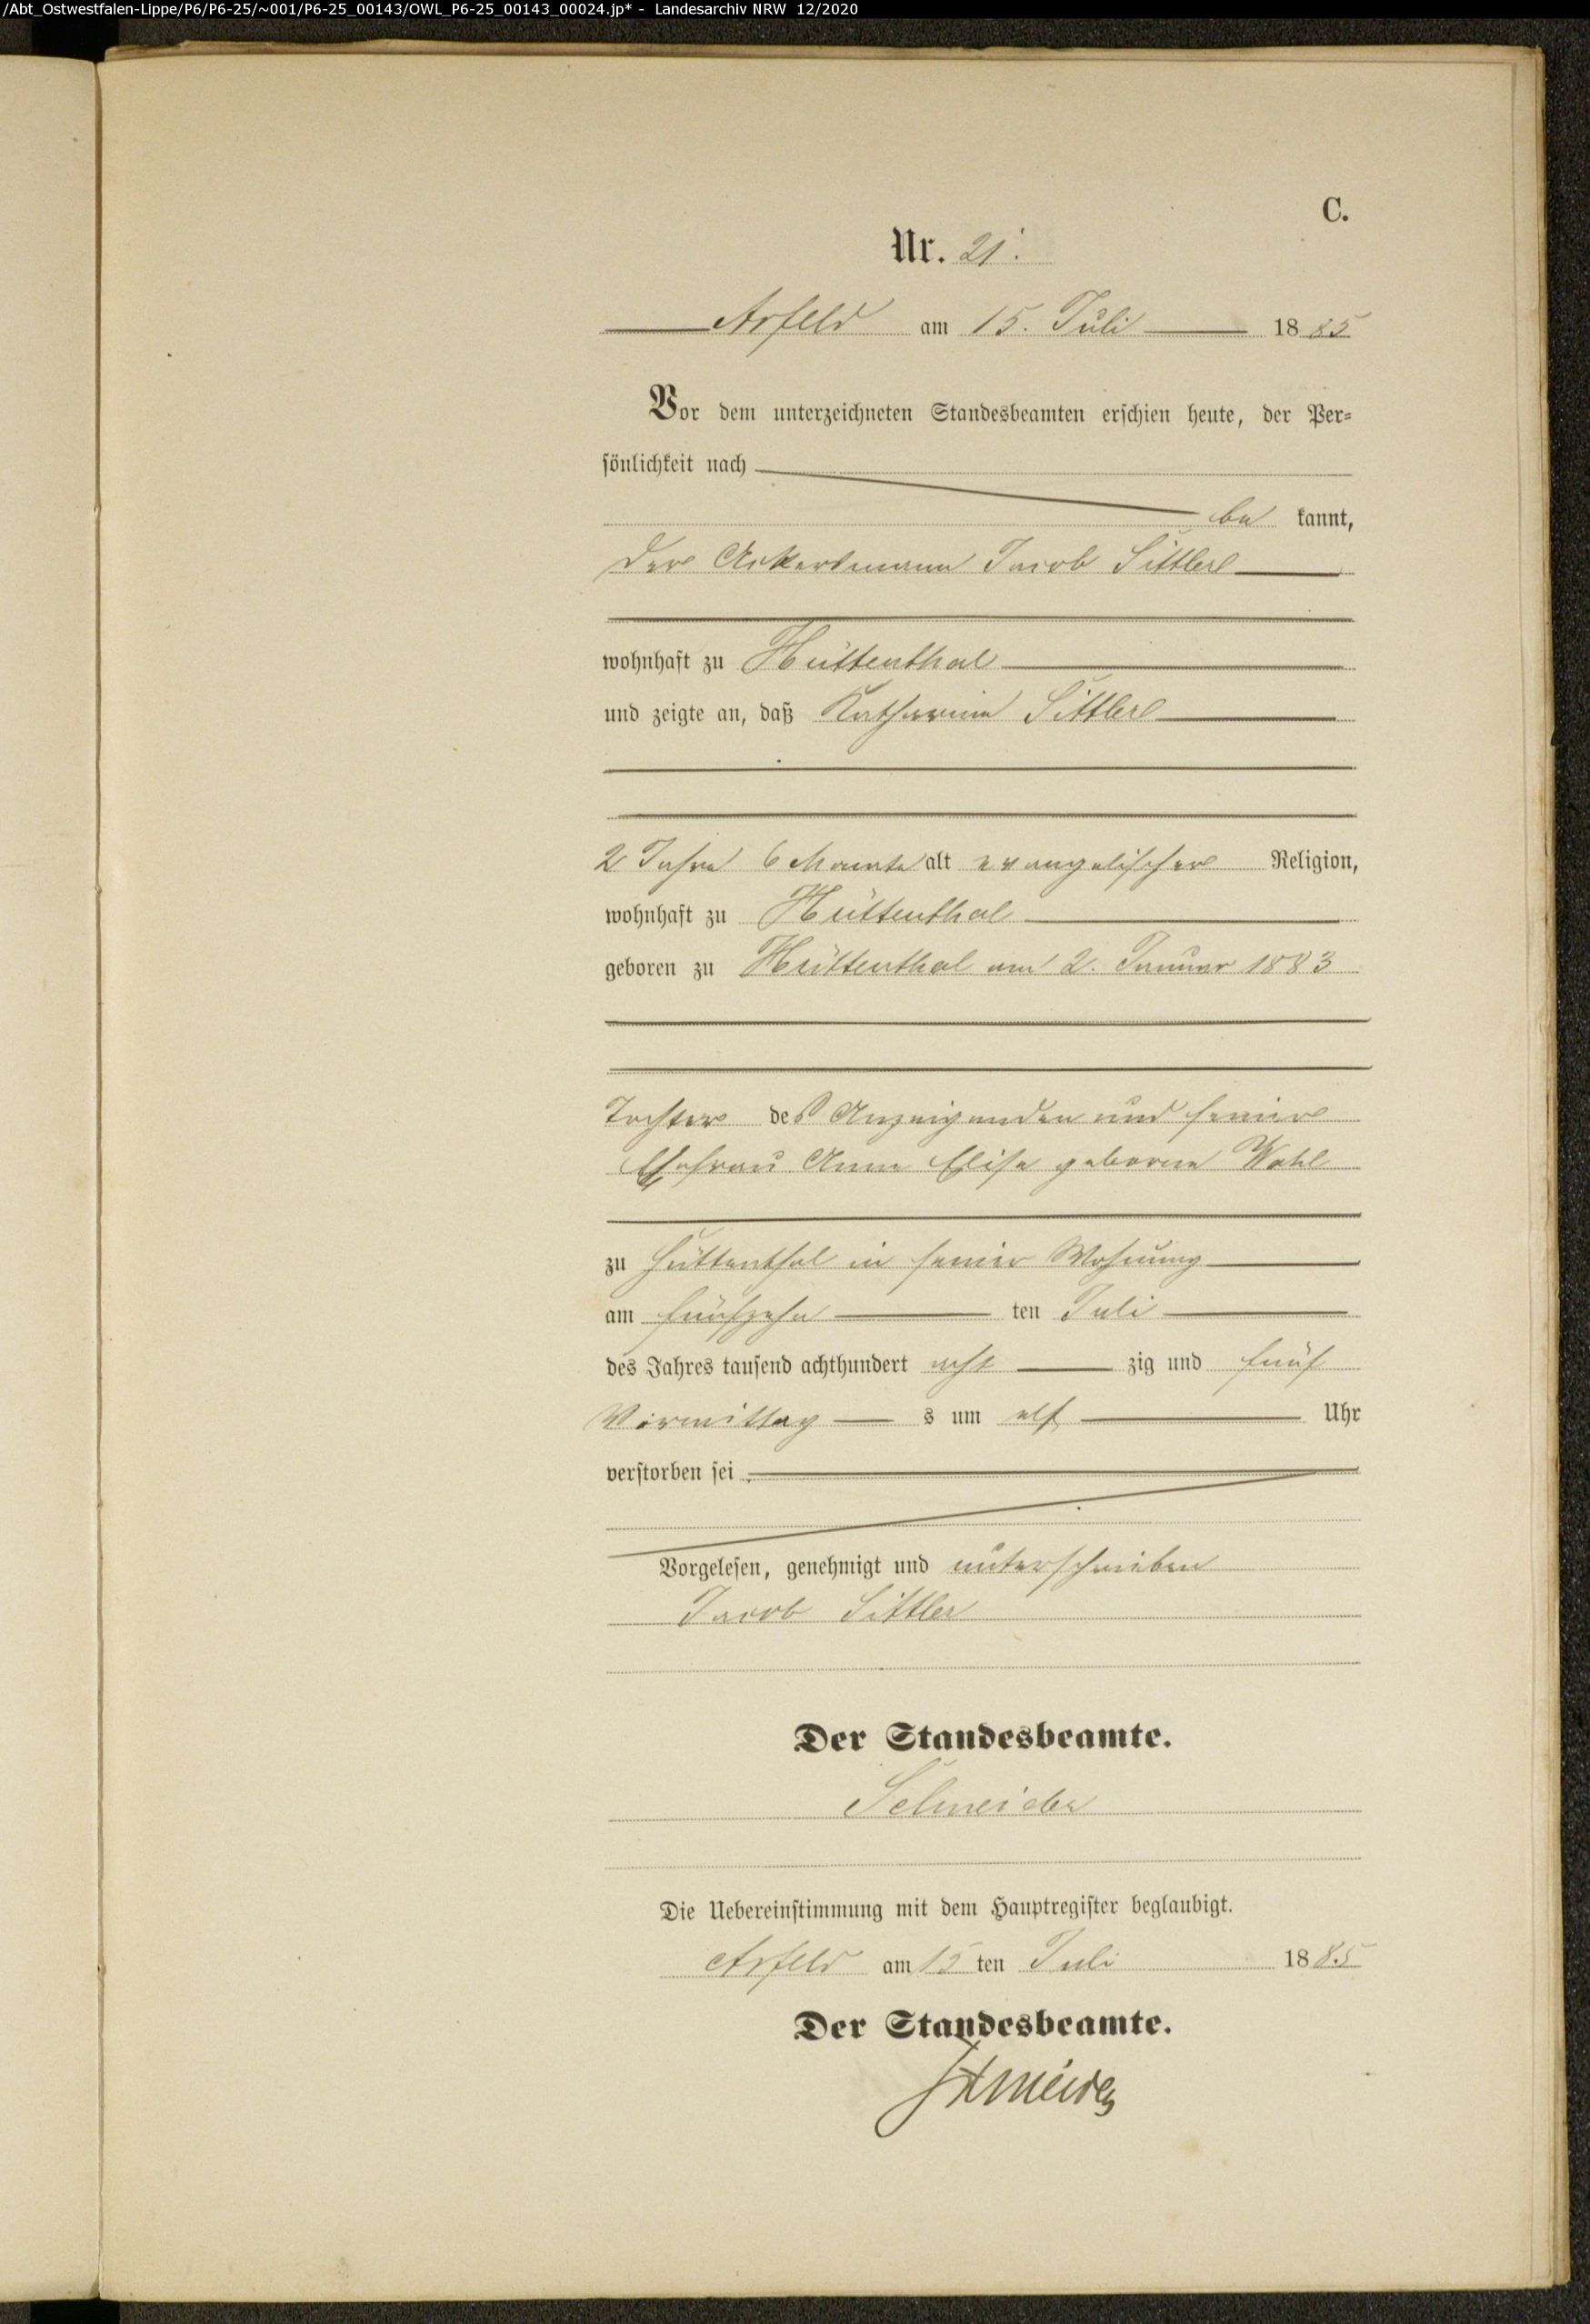 /Abt_Ostwestfalen-Lippe/P6/P6-25/~001/P6-25_00143/OWL_P6-25_00143_00024.jp* - Landesarchiv NRW 12/2020
C.
Nr. 21.
Arfeld am 15. Juli 1885
Vor dem unterzeichneten Standesbeamten erschien heute, der Per-
sönlichkeit nach
be kannt,
der Ackersmann Jacob Sittler
wohnhaft zu Hüttenthal
und zeigte an, daß Katharina Sittler
2 Jahre 6 Monate alt evangelischer Religion,
wohnhaft zu Hüttenthal
geboren zu Hüttenthal am 2. Januar 1883
Tochter des Anzeigenden und seiner
Ehefrau Anna Elise geborne Wahl
zu Hüttenthal in seiner Wohnung
am fünfzehn ten Juli
des Jahres tausend achthundert acht zig und fünf
Vormittag s um elf Uhr
verstorben sei.
Vorgelesen, genehmigt und unterschrieben
Jacob Sittler
Der Standesbeamte.
Schneider
Die Uebereinstimmung mit dem Hauptregister beglaubigt.
Arfeld am 15 ten Juli 1885
Der Standesbeamte.
Schneider